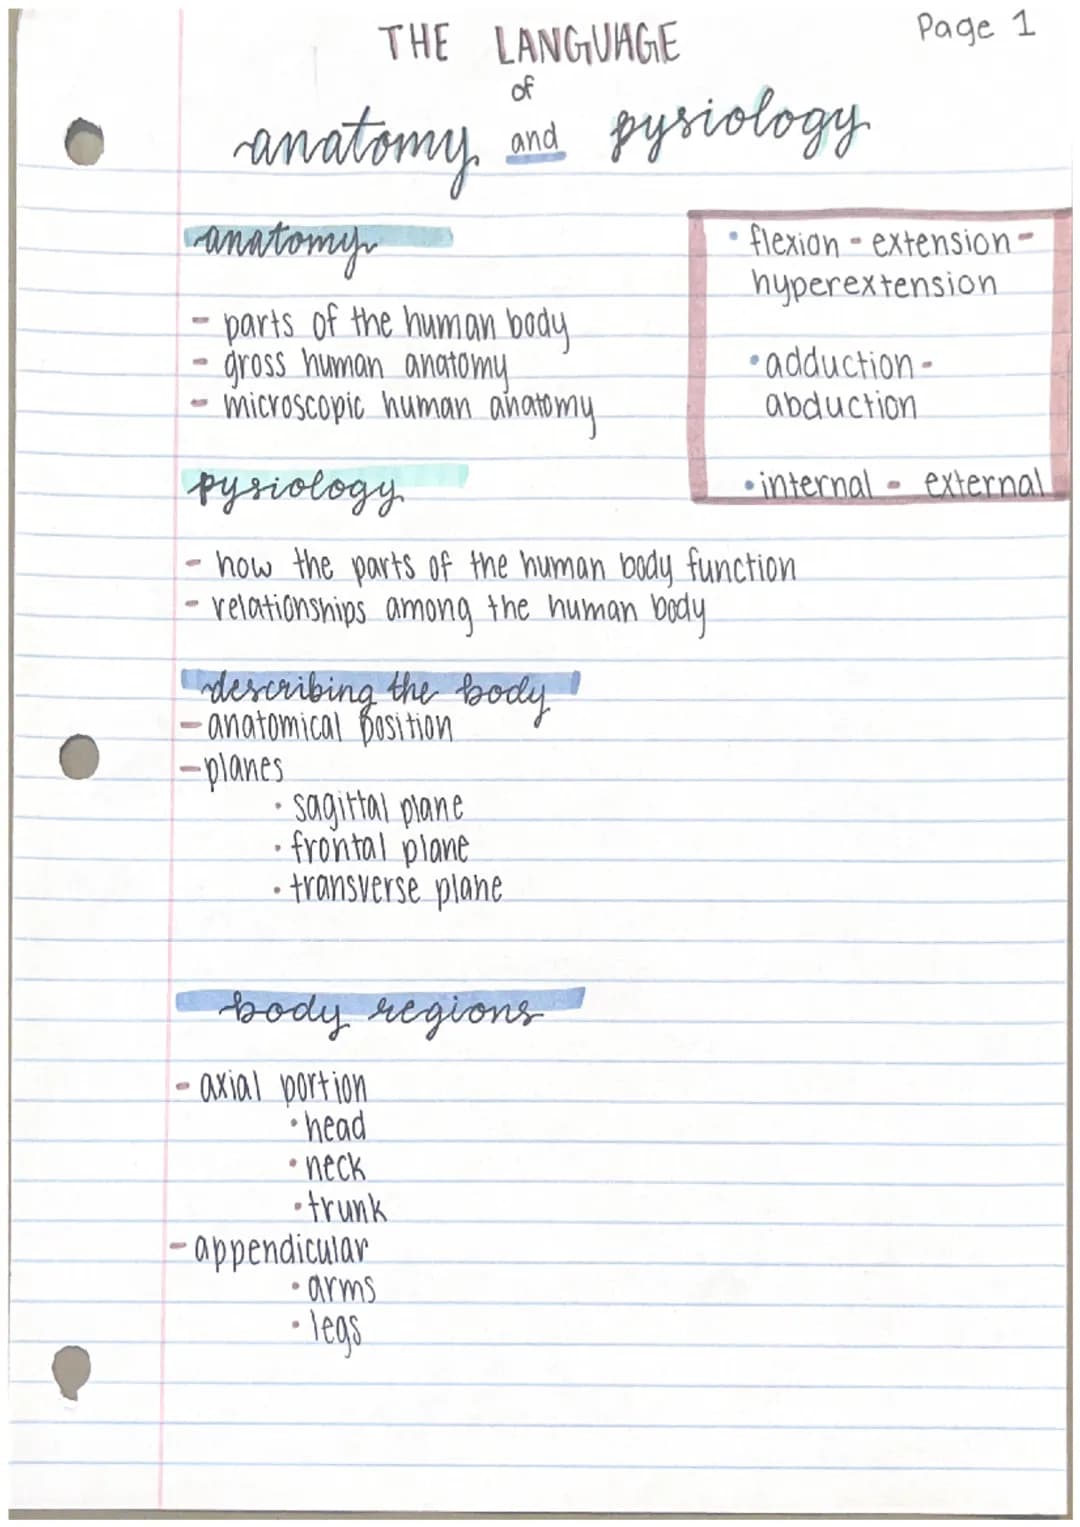 Page 1
THE LANGUAGE
of
anatomy and pysiology
anatomy
- parts of the human body
- gross human anatomy
- microscopic human anatomy
• flexion - extension -
hyperextension
• adduction -
abduction
• internal - external
pysiology
- how the parts of the human body function
- relationships among the human body
describing the body
- anatomical position
- planes
• sagittal plane
• frontal plane
• transverse plane
body regions
- axial portion
• head
• neck
• trunk
- appendicular
• arms
• legs